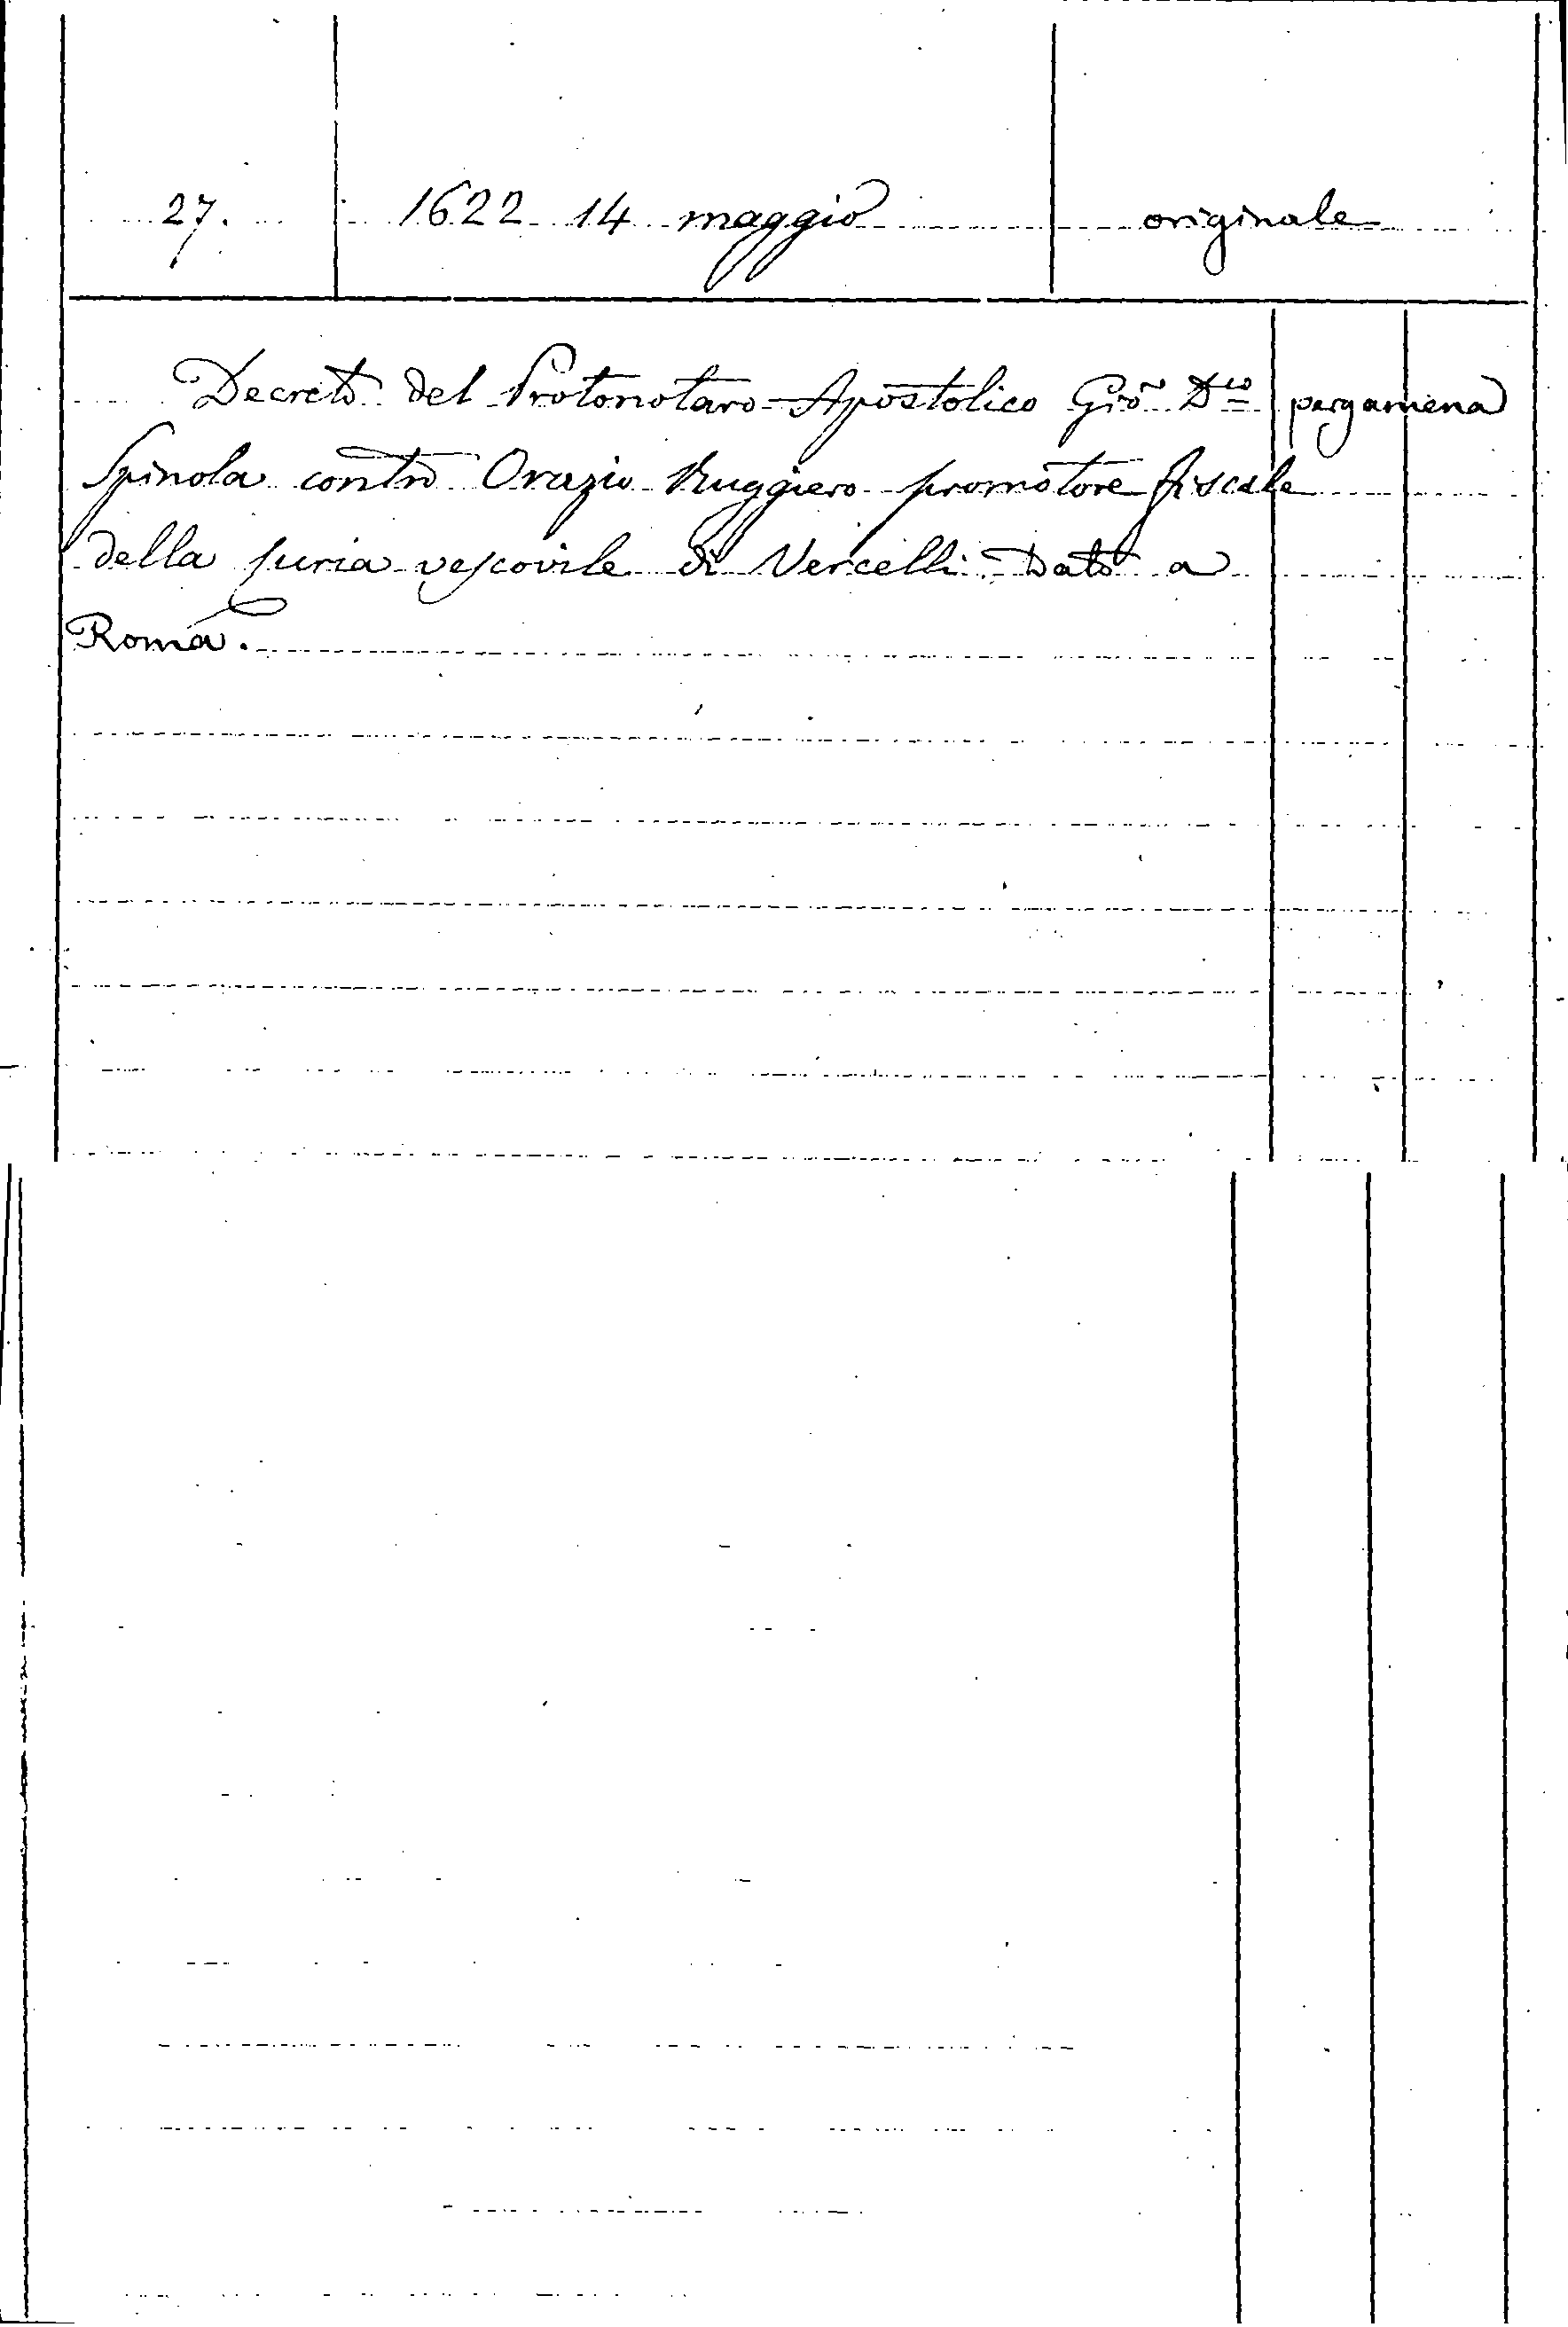 27. 1622 14 maggio originale
Decreto del Protonotaro Apostolico Gio Dco pergamena
Spinola contro Orazio Ruggiero promotore fiscale
della curia vescovile di Vercelli. Dato a
Roma.